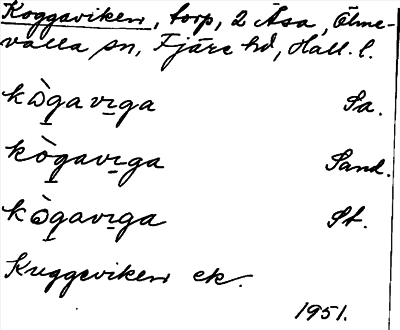 Koggaviken, torp, 2 Åsa, Ölme-
valla sn, Fjäre hd, Hall. l.
kò̱gavi̱ga Sa.
kò̱gavi̱ga Sand.
kò̱gavi̱ga St.
Kuggeviken ek.
1951.